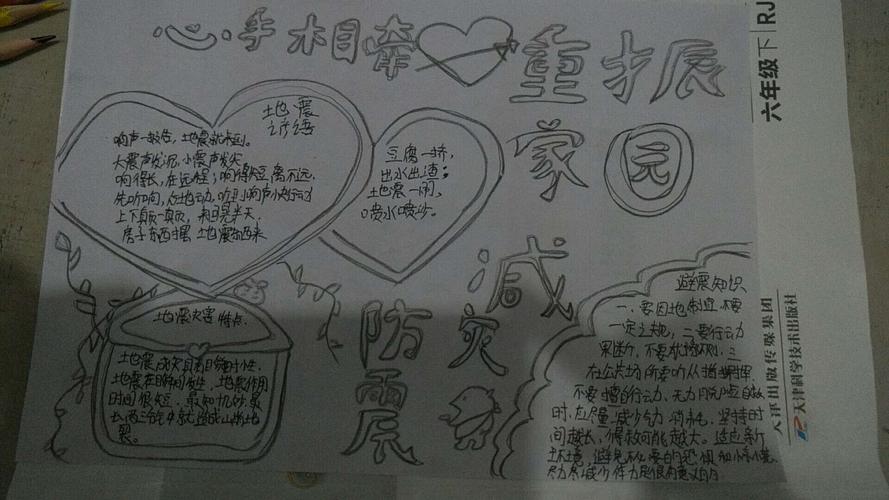 心手相牵 重振
家园
地震
谚语
响声一报告，地震就来到。
大震声发沉，小震声发尖。
响得长，在远程；响得短，离不远。
先听响，后地动，听到响声快行动
上下颠一颠，来回晃半天。
房子东西摆 地震
豆腐一挤，
出水出渣；
地震一闹，
喷水喷沙。
减灾
防震
地震灾害特点
地震成灾具有瞬时性。
地震在瞬间发生，地震作用
时间很短，最短十几秒，最
长两三分钟就造成山崩地
裂。
避震知识
一、要因地制宜，不要
一定之规，二、要行动
果断，不要 三、
在公共场所要听从指挥，
不要擅自行动，无力
时，应尽量减少 消耗，坚持时
间越长，得救可能越大。适应新
环境，避免不必要的
尽力减少体力是很有意义的
六年级下
RJ
天津出版传媒集团
天津科学技术出版社